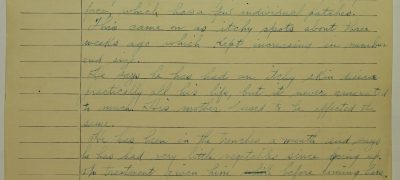 face, which has a few individual patches.
This came on as itchy spots about three
weeks ago which kept increasing in number
and size.
He says he has had an itchy skin
practically all his life, but it never amounted
to much. His mother used to be affected the
same.
He has been in the trenches a month and says
he has had very little vegetables since going up.
No treatment given him before coming here.